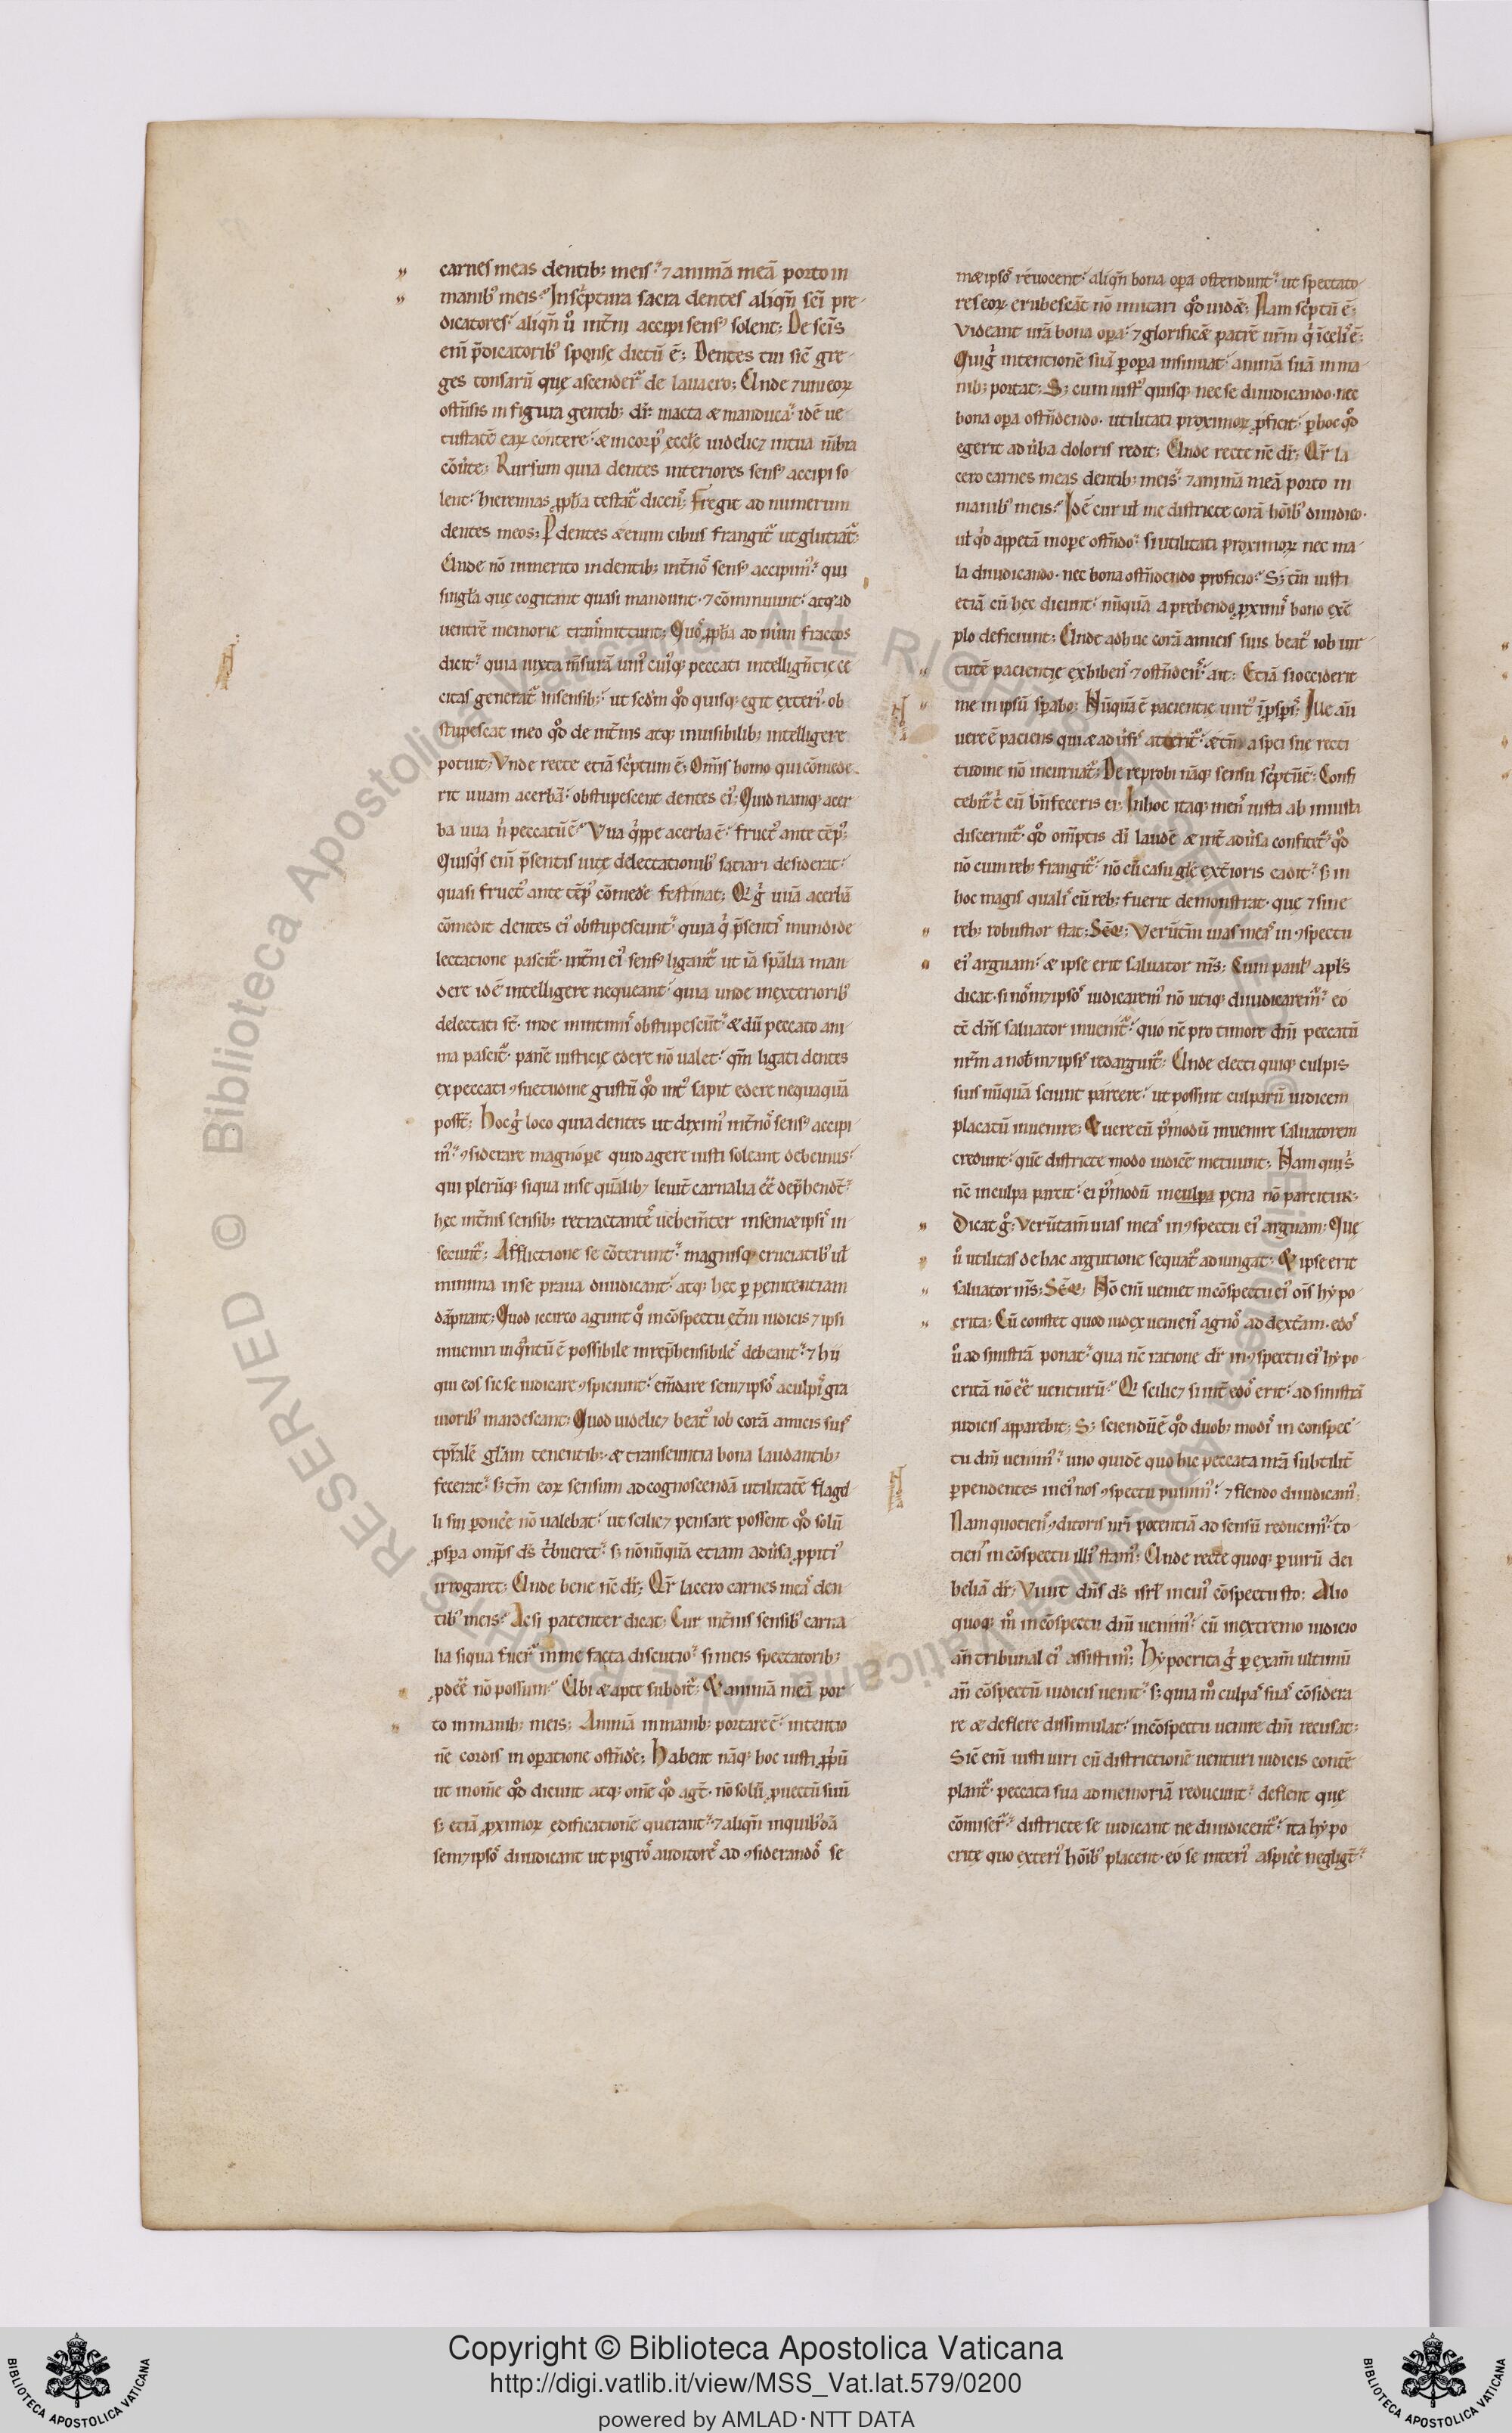 carnes meas dentib; meis? ⁊ animā meā porto in
manib᷒ meis? In sc̄ptura sacra dentes aliqn̄ sc̄i pre-
dicatores. aliqn̄ ũ int̄ni accipi sens᷒ solent; De sc̄is
eni p̄dicatorib᷒ sponse dictū ē; Dentes tui sic̄ gre-
ges tonsarū que ascender̄ de lauacro; Unde ⁊ uni eoꝝ
ostn̄sis in figura gentib; dr̄. macta & manduca. idē ue
tustatē eaꝝ contere. & in corp᷒ eccl̄e uidelic; in tua mb̄ra
cōu̇te; Rursum quia dentes interiores sens᷒ accipi so
lent. hieremias ꝓph̄a testat᷑ dicens; Fregit ad numerum
dentes meos; P dentes & enim cibus frangit᷑ ut glutiat᷑.
Unde nō inmerito in dentib; int̄nos sens᷒ accipim᷒. qui
singl̄a que cogitant quasi mandunt. ⁊ cōminuunt. atq; ad
uentrē memorie transmittunt; Quos ꝓph̄a ad num̄ fractos
dicit. quia iuxta m̄surā uni᷒ cui᷒q; peccati intellign̄tie ce
citas generat᷑ in sensib;. ut sedm̄ qd̄ quisq; egit exteri᷒. ob
stupescat in eo qd̄ de int̄nis atq; inuisibilib; intelligere
potuit; Vnde recte etiā sc̄ptum ē; Om̄is homo qui cōmede-
rit uuam acerbā. obstupescent dentes ei᷒; Quid namq; acer
ba uua n̄ peccatū ē? Vua q̄ppe acerba ē. fruct᷒ ante tēp᷒;
Quisq̄s eni p̄sentis uite delectationib᷒ satiari desiderat.
quasi fruct᷒ ante tēp᷒ cōmed'e festinat; Q̇ g̊ uuā acerbā
cōmedit dentes ei᷒ obstupescunt. quia q̇ p̄sentis mundi de
lectatione pascit᷑. int̄ni ei᷒ sens᷒ ligant᷑ ut iā sp̄alia man
dere idē intelligere nequeant. quia unde in exteriorib᷒
delectati st̄. inde in intimis obstupescūt. & dū peccato ani
ma pascit᷑. panē iusticie edere nō ualet. qm̄ ligati dentes
ex peccati ꝯsuetudine gustū qd̄ int᷒ sapit edere nequaquā
poss̄t; Hoc g̊ loco quia dentes ut dixim᷒ int̄nos sens᷒ accipi
m᷒. ꝯsiderare magnop̱e quid agere iusti soleant debemus.
qui plerūq; siqua in se quālib; leuit̄ carnalia ēē dep̄hendt̄.
hec int̄nis sensib; retractantes uehem̄ter in semeipsis in
secunt᷑; Afflictione se cōterunt. magnisq; cruciatib᷒ ul̄
minima in se praua diiudicant. atq; hec p̱ penitentiam
dāpnant; Quod iccirco agunt q̊ in cōspectu et̄ni iudicis ⁊ ipsi
inueniri inq̄ntū ē possibile inrep̄hensibiles debeant. ⁊ hii
qui eos sic se iudicare ꝯspiciunt. em̄dare sem;ipsos a culpis gra
uiorib᷒ inardescant; Quod uidelic; beat᷒ iob corā amicis suis
tp̄ralē gl̄am tenentib;. & transeuntia bona laudantib;
fecerat. s; tm̄ eoꝝ sensum ad cognoscendā utilitatē flagel-
li sui p̱duc̄e nō ualebat. ut scilic; pensare possent qd̄ solū
ꝓsp̱a omp̄s ds̄ t̄bueret. s; nōnūquā etiam adu̇sa ꝓpiti᷒
irrogaret; Unde bene nc̄ dr̄; Qr̄ lacero carnes meas den
tib᷒ meis? Ac si patenter dicat; Cur int̄nis sensib᷒ carna
lia siqua fuer̄ in me facta discutio. si meis spectatorib;
ꝓdēē nō possum? Ubi & apte subdit᷑; & animā meā por
to in manib; meis; Animā in manib; portare ē. intentio
nē cordis in op̱atione ostn̄d'e; Habent nāq; hoc iusti ꝓp̄ū
ut in om̄e qd̄ dicunt atq; om̄e qd̄ agt̄. nō solū ꝓuectū suū
s; etiā ꝓximoꝝ edificationē querant. ⁊ aliqn̄ in quibusdā
sem;ipsos diiudicant ut pigros auditores ad ꝯsiderandos se
m&ipsos reuocent. aliqn̄ bona op̱a ostendunt. ut spectato-
res eoꝝ erubescāt nō imitari qd̄ uid&; Nam sc̄ptū ē;
Videant ur̄a bona op̱a. ⁊ glorific& patrē ur̄m q̇ in celis ē;
Qui g̊ intentionē suā p̱ op̱a insinuat. animā suā in ma
nib; portat; S; cum iust᷒ quisq; nec se diiudicando. nec
bona op̱a ostn̄dendo. utilitati proximoꝝ ꝓficit. p̱ hoc qd̄
egerit ad ūba doloris redit; Unde recte nc̄ dr̄; Qr̄ la
cero carnes meas dentib; meis. ⁊ animā meā porto in
manib᷒ meis? Idē cur ul̄ me districte corā hōib᷒ diiudico.
ul̄ qd̄ appetā in op̱e ostn̄do. si utilitati proximoꝝ nec ma
la diiudicando. nec bona ostn̄dendo proficio? S; tm̄ iusti
etiā cū hec dicunt. nūquā a prebendo ꝓximis bono exē
plo deficiunt; Unde adhuc corā amicis suis beat᷒ iob uir
tutē pacientie exhibens ⁊ ostn̄dens. ait; Etiā si occiderit
me in ipsū sp̱abo; Nūquā ē pacientie uirt᷒ in ꝓsp̱is; Ille aūt
uere ē paciens qui & adu̇sis atterit᷑. & tm̄ a spei sue recti
tudine nō incuruat᷑; De reprobi nāq; sensu sc̄ptū ē; Confi
tebit᷑ t̄ cū bn̄feceris ei; In hoc itaq; mens iusta ab iniusta
discernit᷑. qd̄ omp̄tis di̅ laudē & int̄ adu̇sa confitet᷑. qd̄
nō cum reb; frangit᷑. nō cū casu gl̄e ext̄ioris cadit. s; in
hoc magis qualis cū reb; fuerit demonstrat. que ⁊ sine
reb; robustior stat; Seq̄; Verūtm̄ uias meas in ꝯspectu
ei᷒ arguam. & ipse erit saluator ms̄; Cum paul᷒ apl̄s
dicat. si nosm;ipsos iudicarem᷒ nō utiq; diiudicarem᷑. eo
tc̄ dn̄s saluator inuenit᷑. quo nc̄ pro timore dn̄i peccatū
nr̄m a nob m;ipsis redarguit᷑; Unde electi quiq; culpis
suis nūquā sciunt parcere. ut possint culparū iudicem
placatū inuenire; & uere eū p̄modū inuenire saluatorem
credunt. quē districte modo iudicē metuunt; Nam qui s'
nc̄ in culpa parcit. ei p̄modū in culpa pena nō parcitur;
Dicat g̊; Verūtam̄ uias meas in ꝯspectu ei᷒ arguam; Que
ũ utilitas de hac argutione sequat᷑ adiungat; & ipse erit
saluator ms̄; Seq̄; Nō eni ueniet in cōspectu ei᷒ oīs hypo
crita; Cū constet quod iudex ueniens agnos ad dext̄am. edos
ũ ad sinistrā ponat. qua nc̄ ratione dr̄ in ꝯspectu ei᷒ hypo
critā nō ēē uenturū? Q̇ scilic; si int̄ edos erit. ad sinistrā
iudicis apparebit; S; sciendū ē qd̄ duob; modis in conspec-
tu dn̄i uenim᷒. uno quidē quo hic peccata nr̄a subtilit̄
p̱pendentes in ei᷒ nos ꝯspectu punim᷒. ⁊ flendo diiudicam᷒;
Nam quotiens ꝯditoris nr̄i potentiā ad sensū reducim᷒. to
tiens in cōspectu illi᷒ stam᷒; Unde recte quoq; p̱ uirū dei
heliā dr̄; Viuit dn̄s ds̄ isrl̄ in cui᷒ cōspectu sto; Alio
quoq; m̊ in cōspectu dn̄i uenim᷒. cū in extremo iudicio
an̄ tribunal ei᷒ assistim᷒; Hypocrita g̊ p̱ exam̄ ultimū
an̄ cōspectū iudicis uenit. s; quia m̊ culpas suas cōsidera
re & deflere dissimulat. in cōspectu uenire dn̄i recusat;
Sic̄ eni iusti uiri cū districtionē uenturi iudicis contē
plant᷑. peccata sua ad memoriā reducunt. deflent que
cōmiser̄. districte se iudicant ne diiudicent᷑. ita hypo
crite quo exteri᷒ hōib᷒ placent. eo se interi᷒ aspic̄e negliḡt.
Copyright © Biblioteca Apostolica Vaticana
http://digi.vatlib.it/view/MSS_Vat.lat.579/0200
powered by AMLAD·NTT DATA